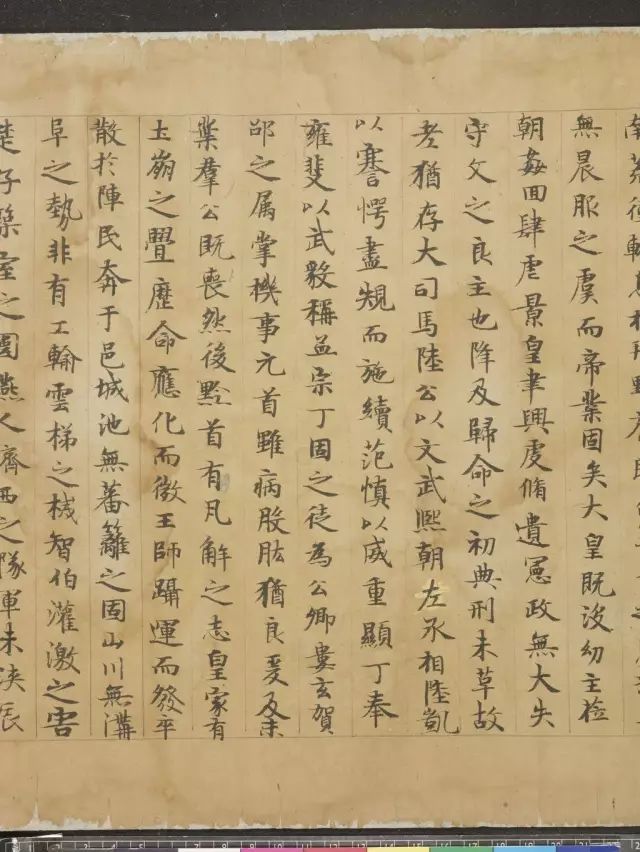 南荒
無晨服之虞而帝業固矣大皇既沒幼主莅
朝姦回肆虐景皇聿興虔脩遺憲政無大失
守文之良主也降及歸命之初典刑未草故
老猶存大司馬陸公以文武熙朝左丞相陸凱
以謇愕盡規而施續范慎以威重顯丁奉
雍斐以武毅稱孟宗丁固之徒為公卿婁玄賀
邵之属掌機事元首雖病股肱猶良爰及末
葉羣公既喪然後黔首有凡解之志皇家有
土崩之舋歷命應化而微王師躡運而發卒
散於陣民奔于邑城池無蕃籬之固山川無溝
阜之勢非有工輸雲梯之椷智伯灌激之害
楚子築室之圍燕人濟西之隊軍未浹辰